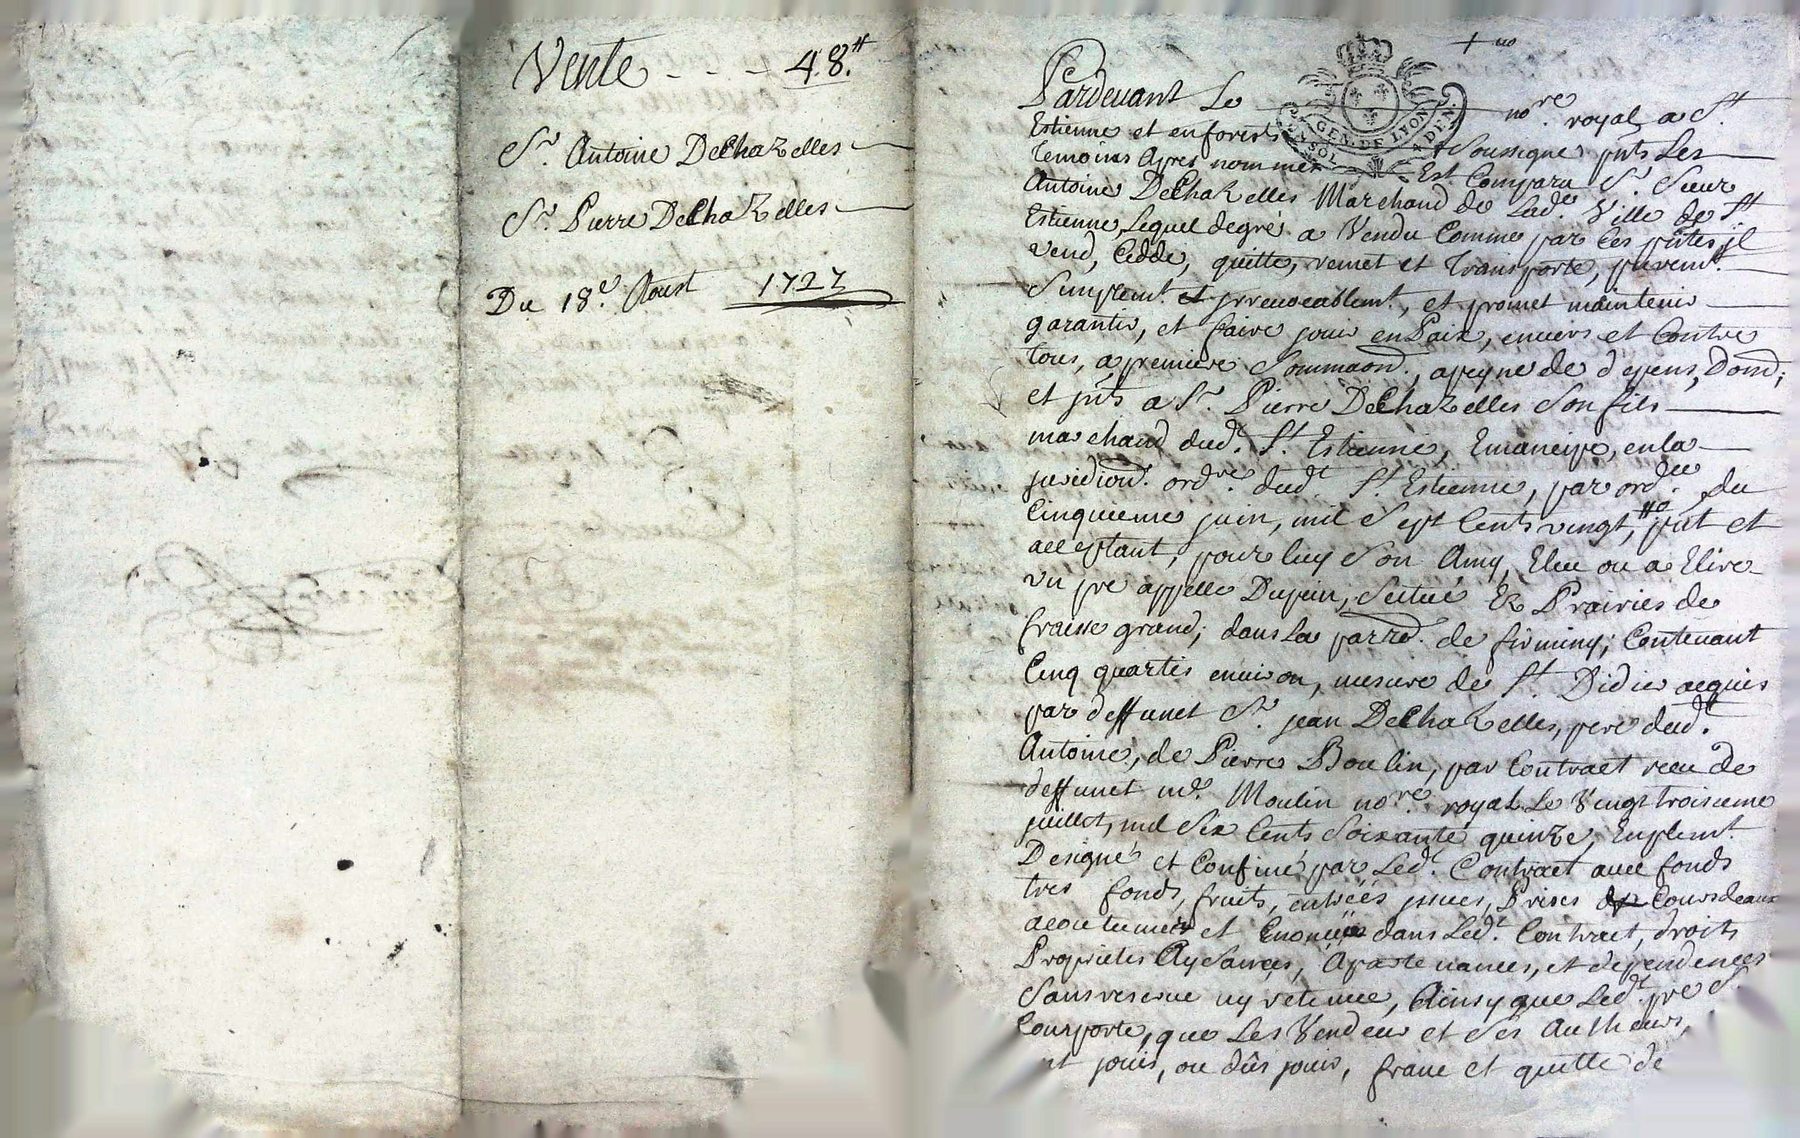 Vente - - - 48.#
Sr. Antoine DeChazelles
Sr. Pierre DeChazelles
Du 18e. Aoust 1727
Pardevant Le nore. royal a St.
Estienne et enforests Soussigné pnts Les
temoins Apres nommez Est Comparu Sr. Sieur
Antoine DeChazelles Marchand de Lade. Ville de St.
Estienne, Lequel degré a Vendu Comme par Ces pntes, il
vend, Cedde, quitte, remet et transporte, puremt.
Simplemt. et irrevocablemt., et promet maintenir
garantir, et faire jouir enPaix, envers et Contre
tous, a premiere Sommaon., apeyne de depens,
et pnts a Sr. Pierre DeChazelles Son fils
marchand dud. St. Estienne, Emancipé, enla
juridion. ordre. dudt. St. Estienne, par ord. du
Cinquieme juin, mil Sept Cents vingt, pnt et
acceptant, pour luy Son Amy, Eleu ou a Elire
un pré appellé Dupuin, Scitué Ez Prairies de
fraisse grand, dans La parre. de firminy, Contenant
Cinq quartes environ, mesure de St. Didier acquis
par deffunct Sr. jean DeChazelles, pere dudt.
Antoine, de Pierre Boulin, par Contract receu de
deffunct me. Moulin nore. royal Le Vingt troisieme
juillet, mil Six Cents Soixante quinze, Emplemt
Designé et Confiné par Ledt. Contract avec fonds
tres fonds, fruits, entrées issues, Prises Coursdeaux
acoutumées et Enoncées dans Ledt. Contract, droits
Proprietes Aysances, Apartenances, et dependences
Sansreserve ny retenue, Ainsy que Ledt. pré S.
Comporte, que Les Vendeur et Ses Autheurs,
nt jouis, ou dûs jouir, franc et quitte de
GEN. DE LYON